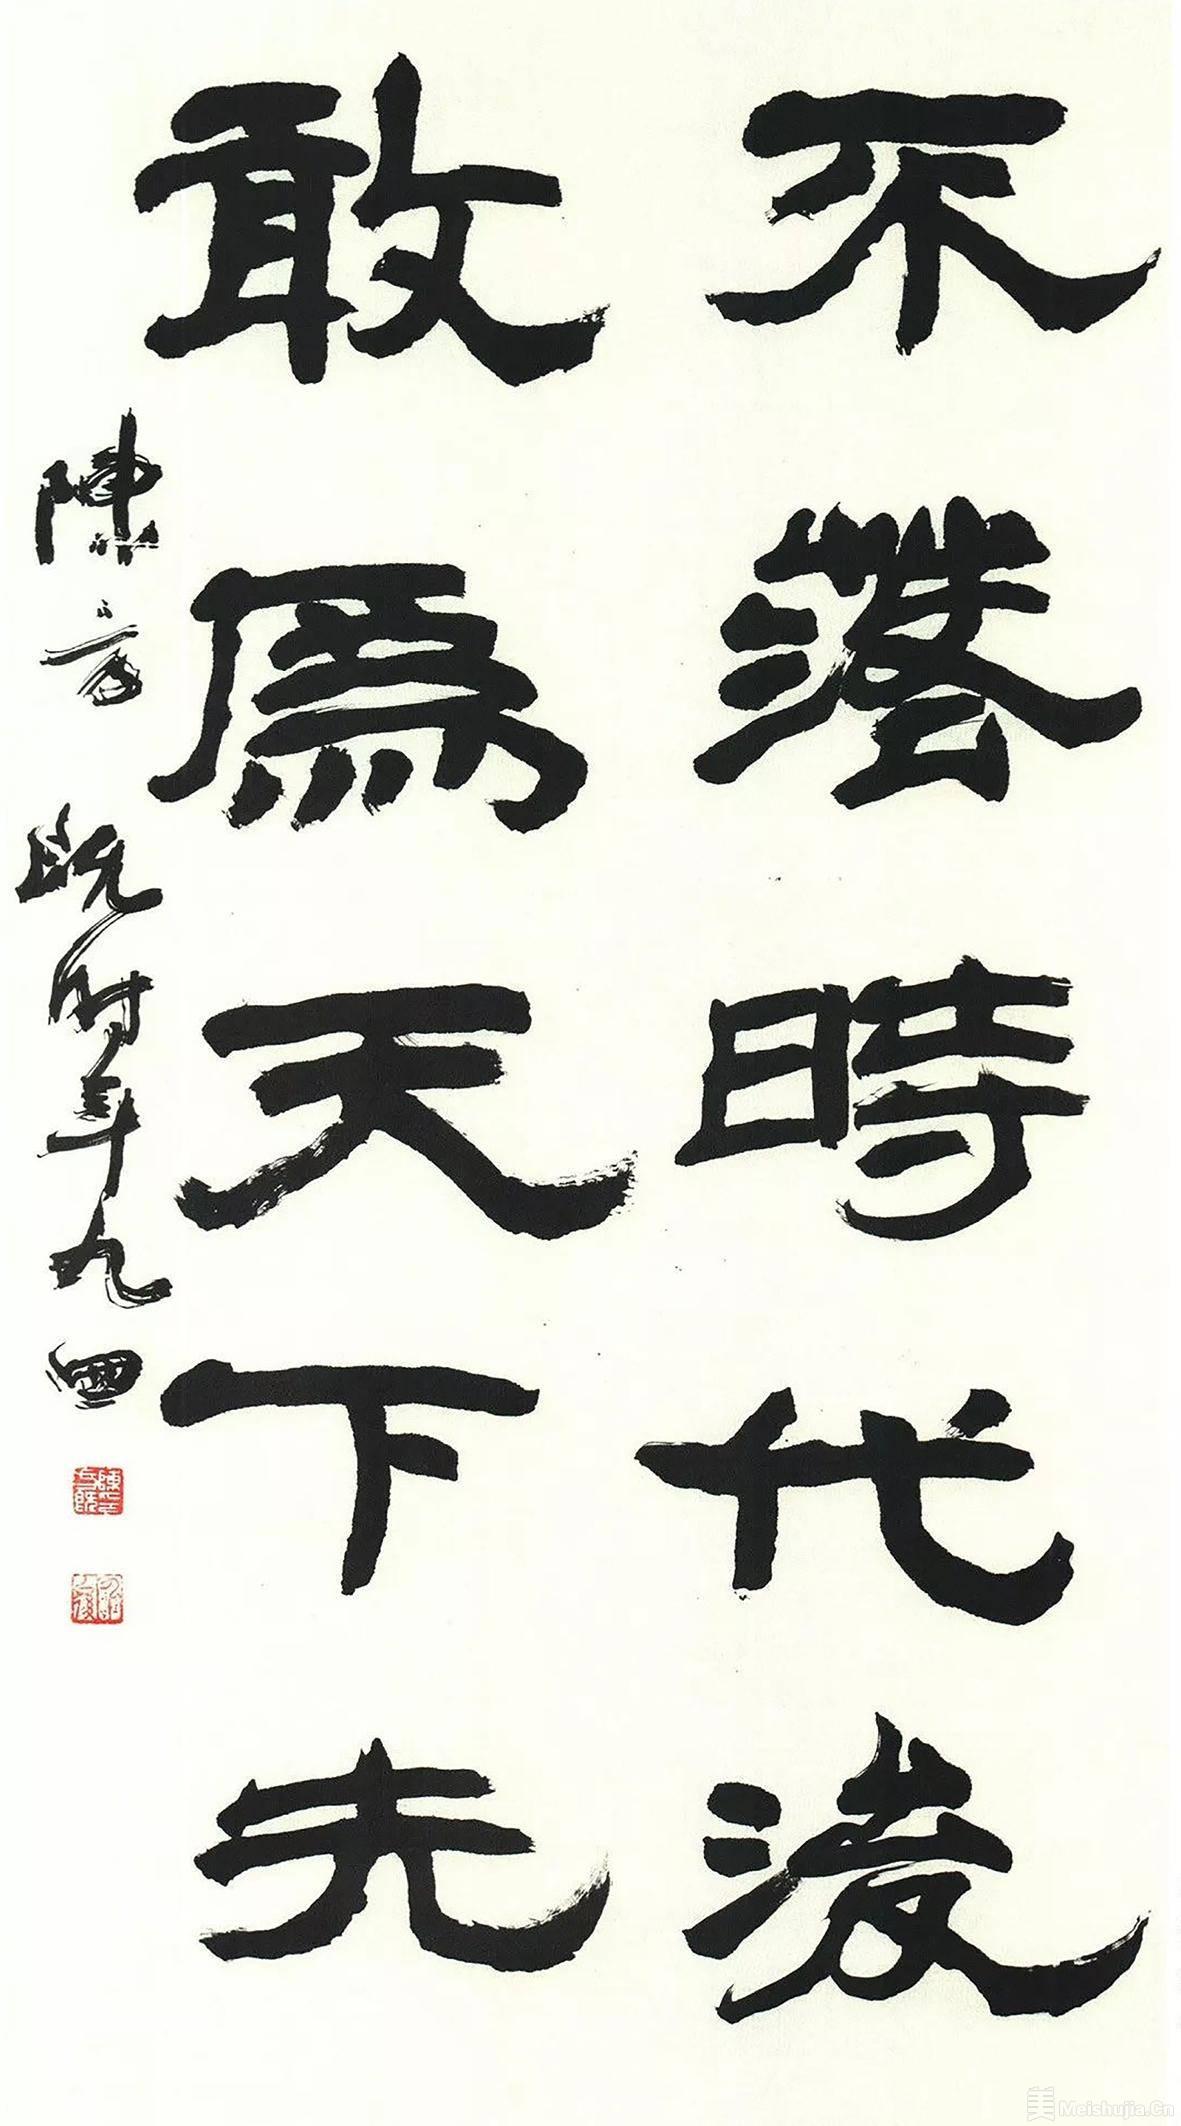 不落時代後
敢為天下先
陳方既時年九四
美 Meishujia.Cn